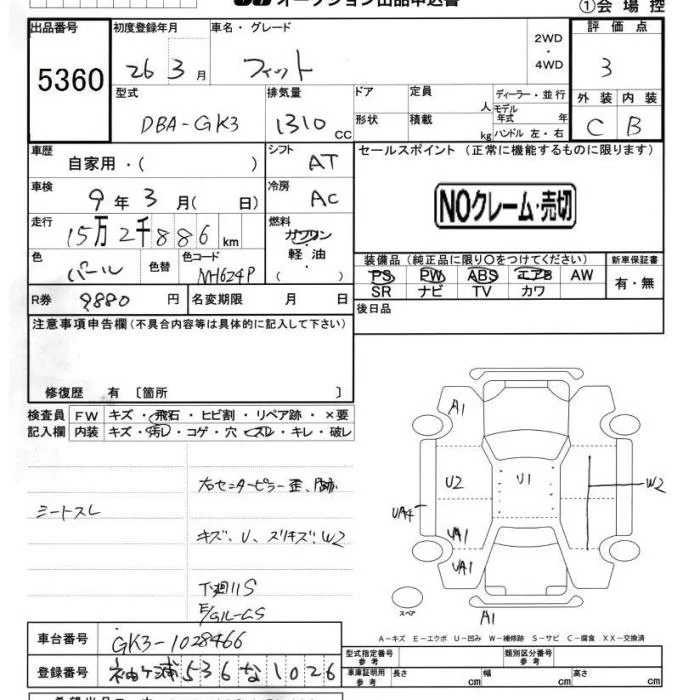 ①会場控
出品番号 初度登録年月 車名・グレード 2WD・4WD 評価点
5360 26 3月 フィット 3
型式 排気量 ドア 定員 人 ディーラー・並行 外装 内装
DBA-GK3 1310cc 形状 積載 kg モデル年式 年 ハンドル 左・右 C B
車歴 自家用・( ) シフト AT セールスポイント (正常に機能するものに限ります)
車検 9年3月( 日) 冷房 AC
NOクレーム・売切
走行 15万2千886km 燃料 ガソリン・軽油・( )
色 パール 色替 色コード NH624P
装備品 (純正品に限り○をつけてください) 新車保証書
PS PW ABS エアB AW 有・無
SR ナビ TV カワ
R券 9880円 名変期限 月 日 後日品
注意事項申告欄(不具合内容等は具体的に記入して下さい)
修復歴 有 〔箇所 〕
検査員 FW キズ・飛石・ヒビ割・リペア跡・×要
記入欄 内装 キズ・汚レ・コゲ・穴・スレ・キレ・破レ
右センターピラー歪、
シートスレ
キズ、U、スリキズ、W2
下廻りS
A1
U2 U1 W2
UA4
UA1
UA1
スペア A1
A-キズ E-エクボ U-凹み W-補修跡 S-サビ C-腐食 XX-交換済
車台番号 GK3-1028466
登録番号 袖ケ浦536な1026
型式指定番号 参考 類別区分番号 参考
車庫証明用 参考 長さ cm 幅 cm 高さ cm